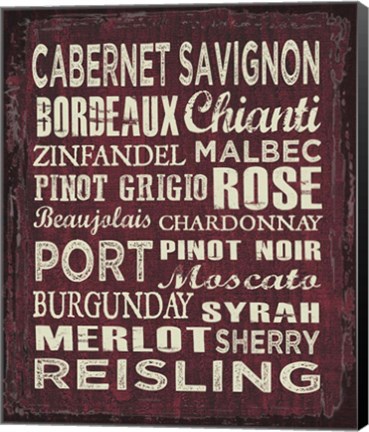 CABERNET SAVIGNON
BORDEAUX Chianti
ZINFANDEL MALBEC
PINOT GRIGIO ROSE
Beaujolais CHARDONNAY
PORT PINOT NOIR
Moscato
BURGUNDAY SYRAH
MERLOT SHERRY
REISLING